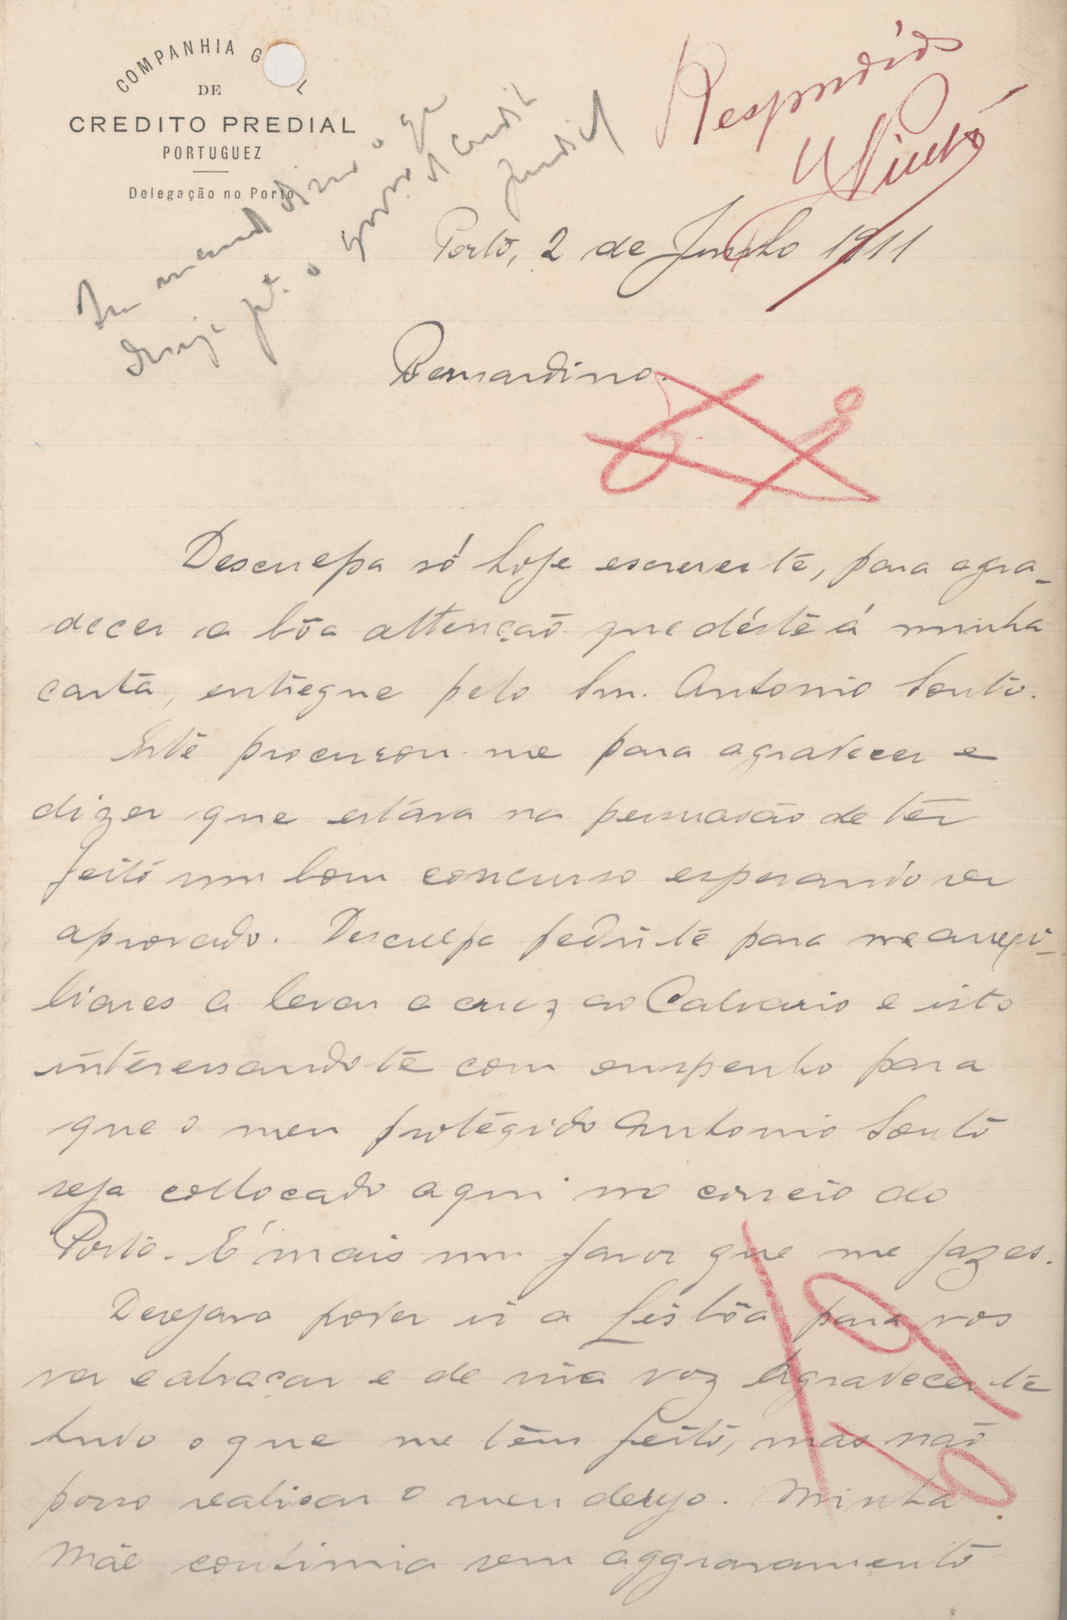 COMPANHIA G L
DE
CREDITO PREDIAL
PORTUGUEZ
Delegação no Porto
Respondido
Porto, 2 de Junho 1911
Bernardino.
Desculpa só hoje escrever-te, para agra-
decer a bôa attenção que déste á minha
carta, entregue pelo Snr. Antonio Souto.
Este procurou-me para agradecer e
dizer que estava na persuasão de ter
feito um bom concurso esperando ser
aprovado. Desculpa pedir-te para me auxi-
liares a levar a cruz ao Calvario e isto
interessando-te com empenho para
que o meu protegido Antonio Souto
seja collocado aqui no correio do
Porto. E' mais um favor que me fazes.
Desejava poder ir a Lisbôa para vos
ver e abraçar e de viva voz agradecer-te
tudo o que me tens feito, mas não
posso realisar o meu desejo. Minha
Mãe continua sem aggravamento